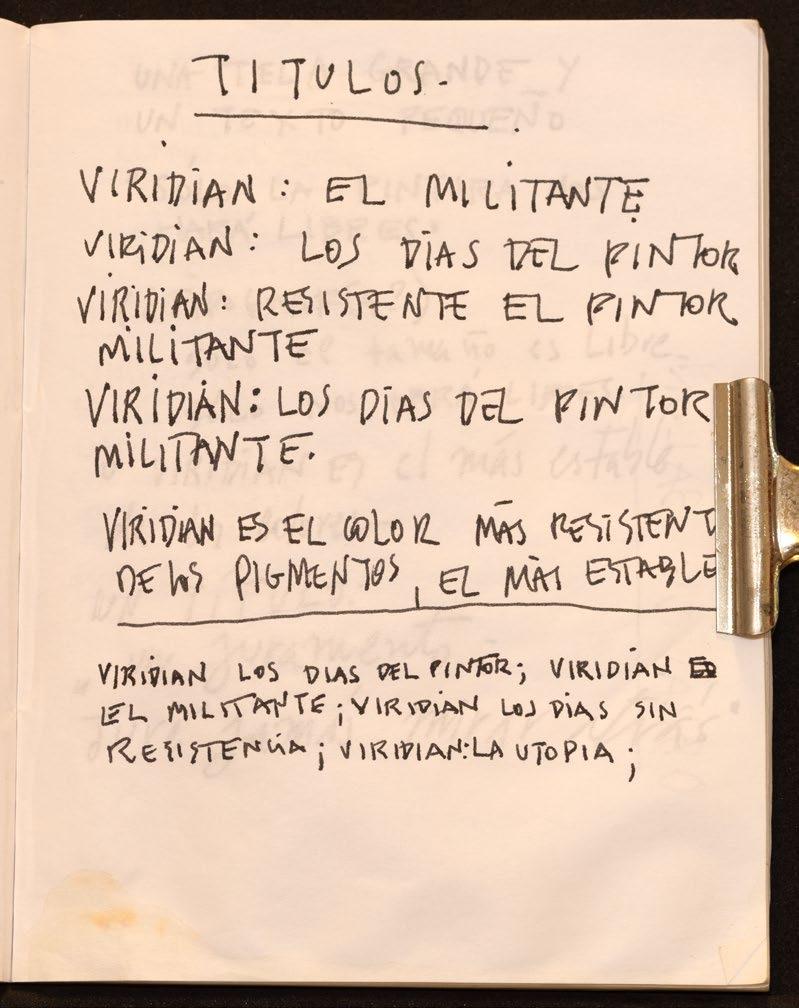 TITULOS.
VIRIDIAN: EL MILITANTE
VIRIDIAN: LOS DÍAS DEL PINTOR
VIRIDIAN: RESISTENTE EL PINTOR
MILITANTE
VIRIDIAN: LOS DÍAS DEL PINTOR
MILITANTE.
VIRIDIAN ES EL COLOR MÁS RESISTENT
DE LOS PIGMENTOS, EL MÁS ESTABLE
VIRIDIAN LOS DIAS DEL PINTOR; VIRIDIAN
EL MILITANTE; VIRIDIAN LOS DIAS SIN
RESISTENCIA; VIRIDIAN: LA UTOPIA;